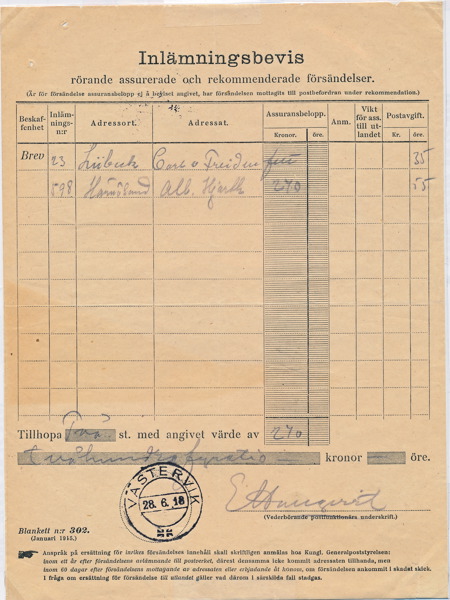 Inlämningsbevis
rörande assurerade och rekommenderade försändelser.
(Är för försändelse assuransbelopp ej å beviset angivet, har försändelsen mottagits till postbefordran under rekommendation.)
Beskaffenhet Inlämnings-n:r Adressort. Adressat. Assuransbelopp. Kronor. öre. Anm. Vikt för ass. till utlandet Postavgift. Kr. öre.
Brev 23 Lübeck Carl v 35
598 Alb. 240 55
Tillhopa Två st. med angivet värde av 240
tvåhundrafyratio — kronor — öre.
VÄSTERVIK
28.6.18
(Vederbörande postfunktionärs underskrift.)
Blankett n:r 302.
(Januari 1915.)
Anspråk på ersättning för inrikes försändelses innehåll skall skriftligen anmälas hos Kungl. Generalpoststyrelsen:
inom ett år efter försändelsens avlämnande till postverket, därest densamma icke kommit adressaten tillhanda, men
inom 60 dagar efter försändelsens mottagande av adressaten eller erbjudande åt honom, om försändelsen ankommit i skadat skick.
I fråga om ersättning för försändelse till utlandet gäller vad därom i särskilda fall stadgas.